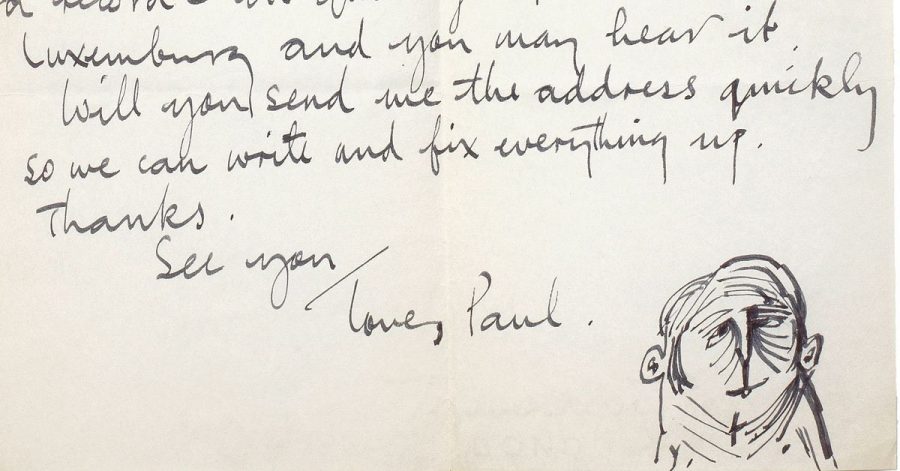 Luxemburg and you may hear it.
Will you send me the address quickly
so we can write and fix everything up.
Thanks.
See you
Love, Paul.